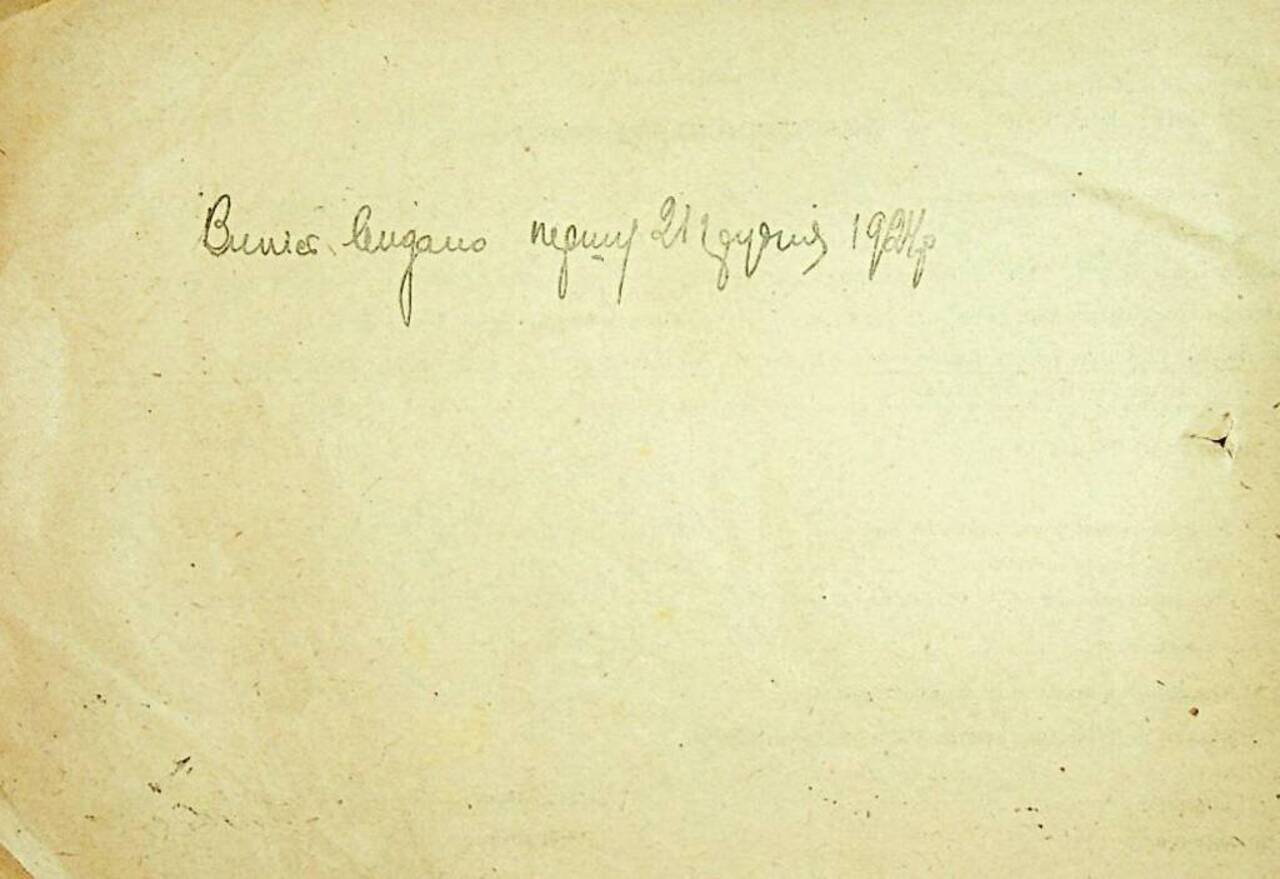 Випис видано першу 21 грудня 1924 р